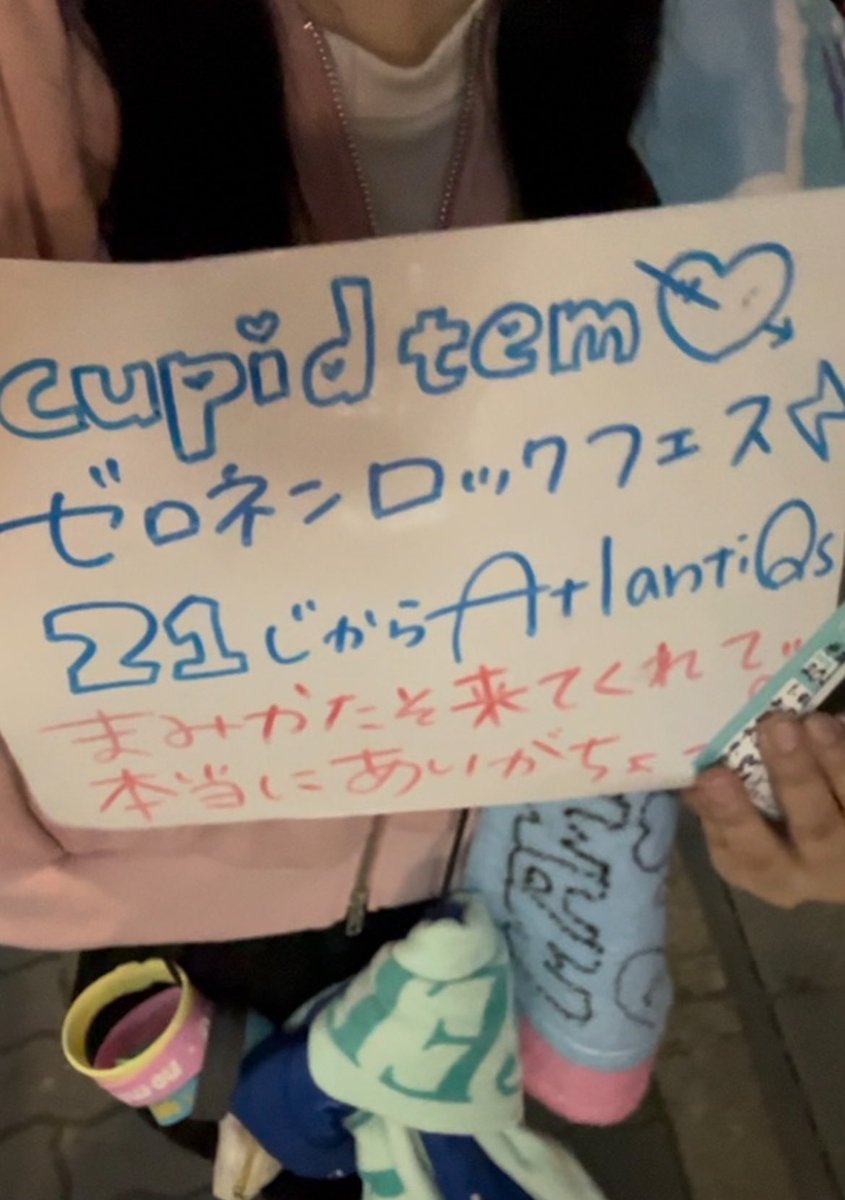 cupid tem
ゼロネンロックフェス
21じから AtlantiQs
まみかたそ来てくれて
本当にあいがちょ